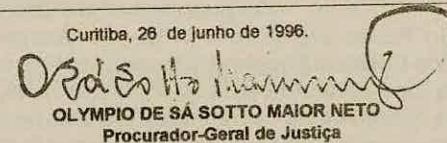 Curitiba, 26 de junho de 1996.
OLYMPIO DE SÁ SOTTO MAIOR NETO
Procurador-Geral de Justiça